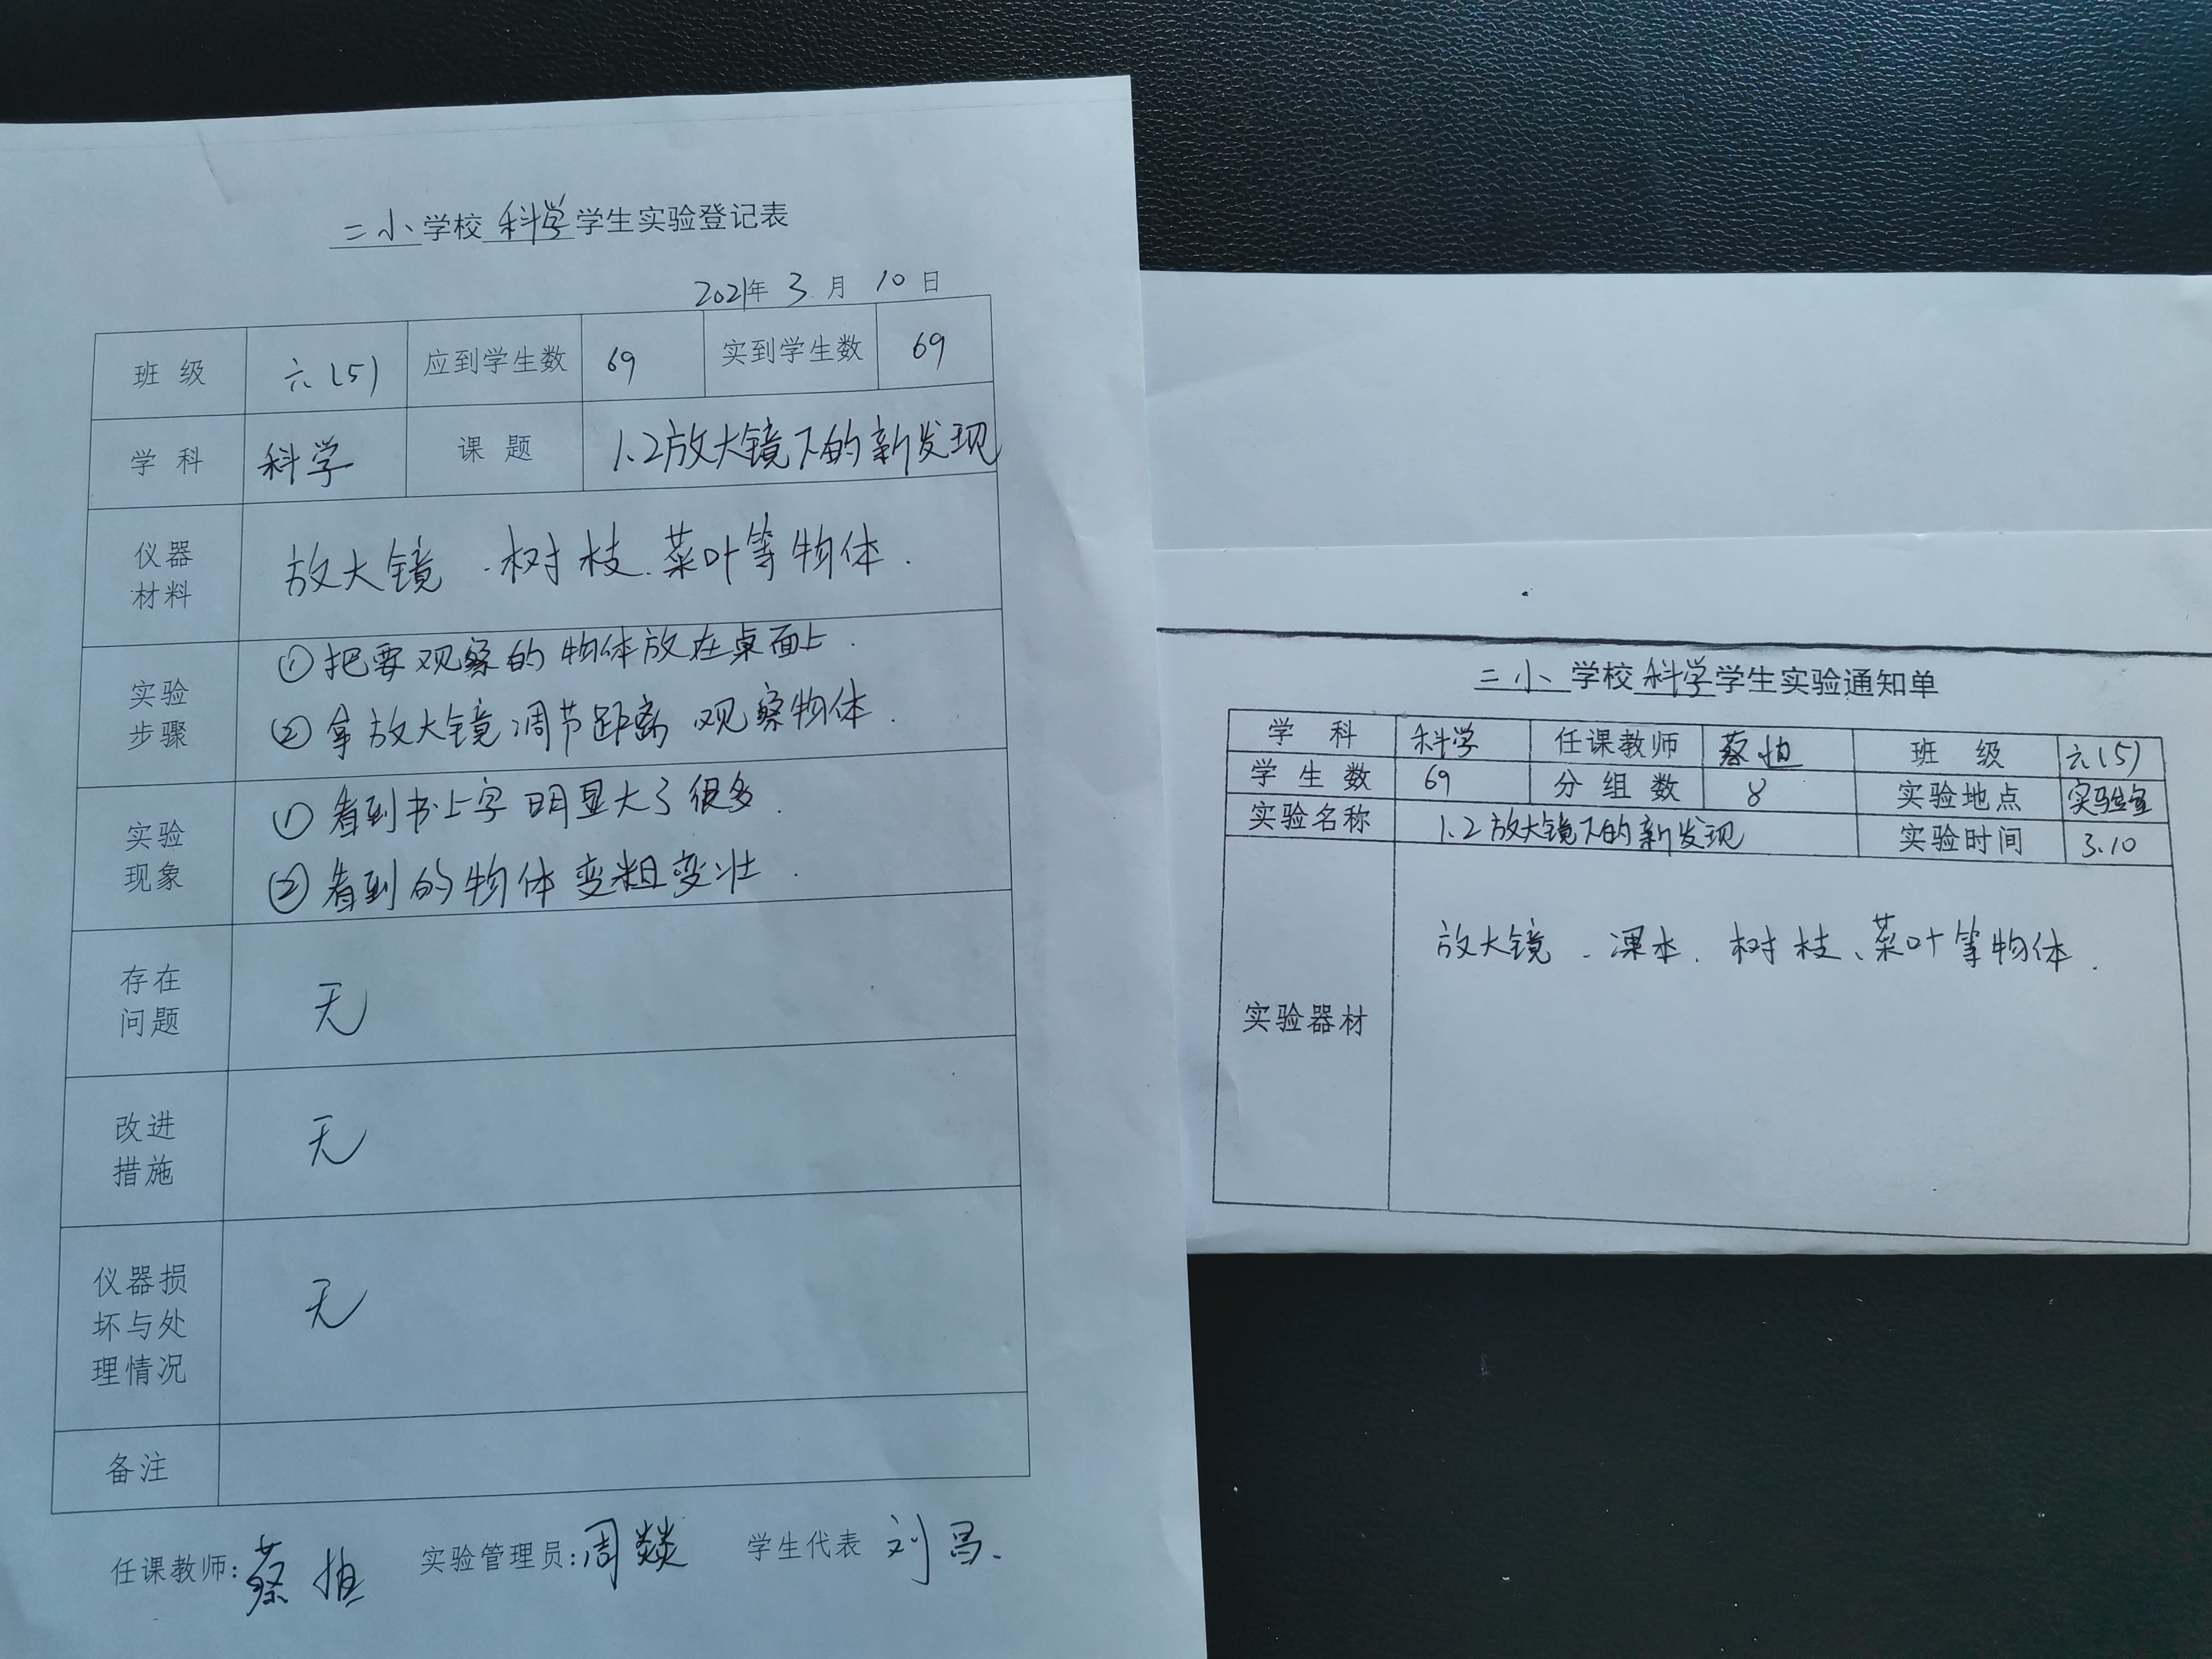 二小学校科学学生实验登记表
2021年3月10日
班级 六(5) 应到学生数 69 实到学生数 69
学科 科学 课题 1.2放大镜下的新发现
仪器材料 放大镜、树枝、菜叶等物体.
实验步骤 ①把要观察的物体放在桌面上.
②拿放大镜调节距离 观察物体.
实验现象 ①看到书上字明显大了很多.
②看到的物体变粗变壮.
存在问题 无
改进措施 无
仪器损坏与处理情况 无
备注
任课教师:蔡 实验管理员:周燚 学生代表 刘昌.
二小学校科学学生实验通知单
学科 科学 任课教师 蔡 班级 六(5)
学生数 69 分组数 8 实验地点 实验室
实验名称 1.2放大镜下的新发现 实验时间 3.10
实验器材 放大镜、课本、树枝、菜叶等物体.